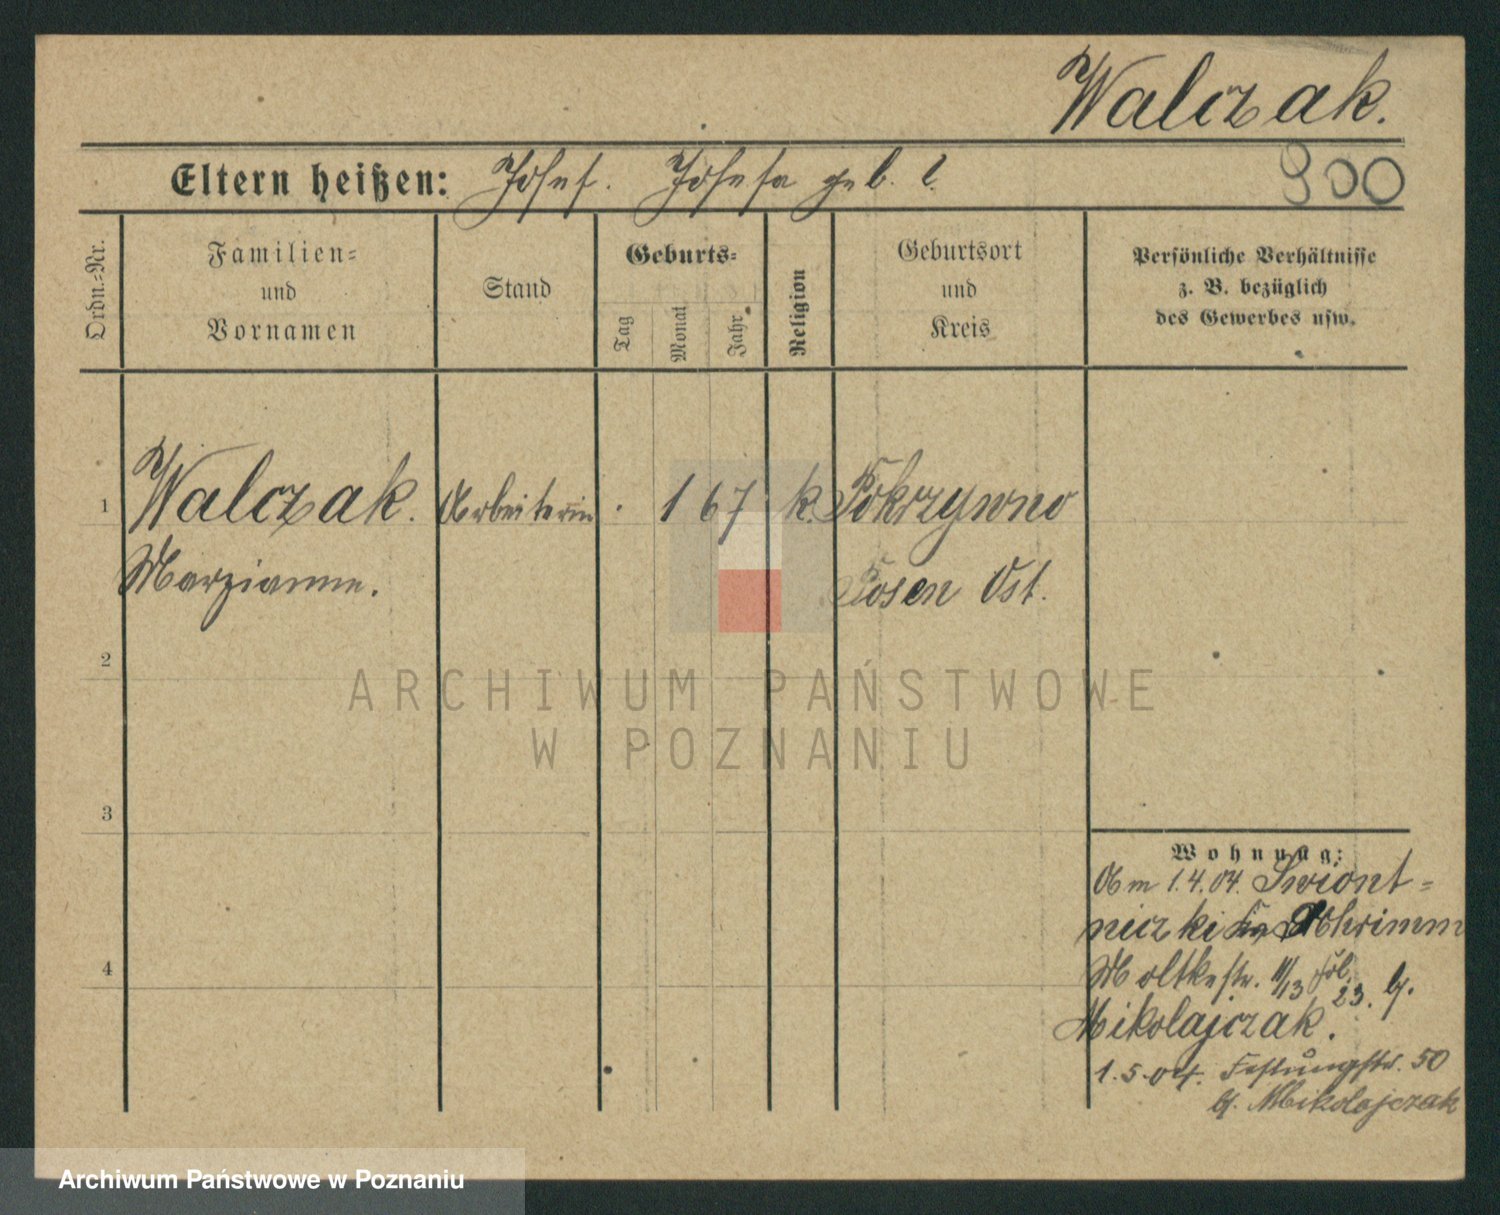 Walczak.
Eltern heißen: Josef. Josefa geb. ?
900
Ordn.-Nr.
Familien-
und
Vornamen
Stand
Geburts-
Tag
Monat
Jahr
Religion
Geburtsort
und
Kreis
Persönliche Verhältnisse
z. B. bezüglich
des Gewerbes usw.
1
Walczak. Arbeiterin . 1 67 k. Pokrzywno
Marzianna. Posen Ost.
2
ARCHIWUM PAŃSTWOWE
W POZNANIU
3
Wohnung:
Am 1.4.04. Swiont-
niczki Schrimm
4
Moltkestr. 11/13 23. b.
Mikolajczak.
1.5.04. Festungstr. 50
b. Mikolajczak
Archiwum Państwowe w Poznaniu